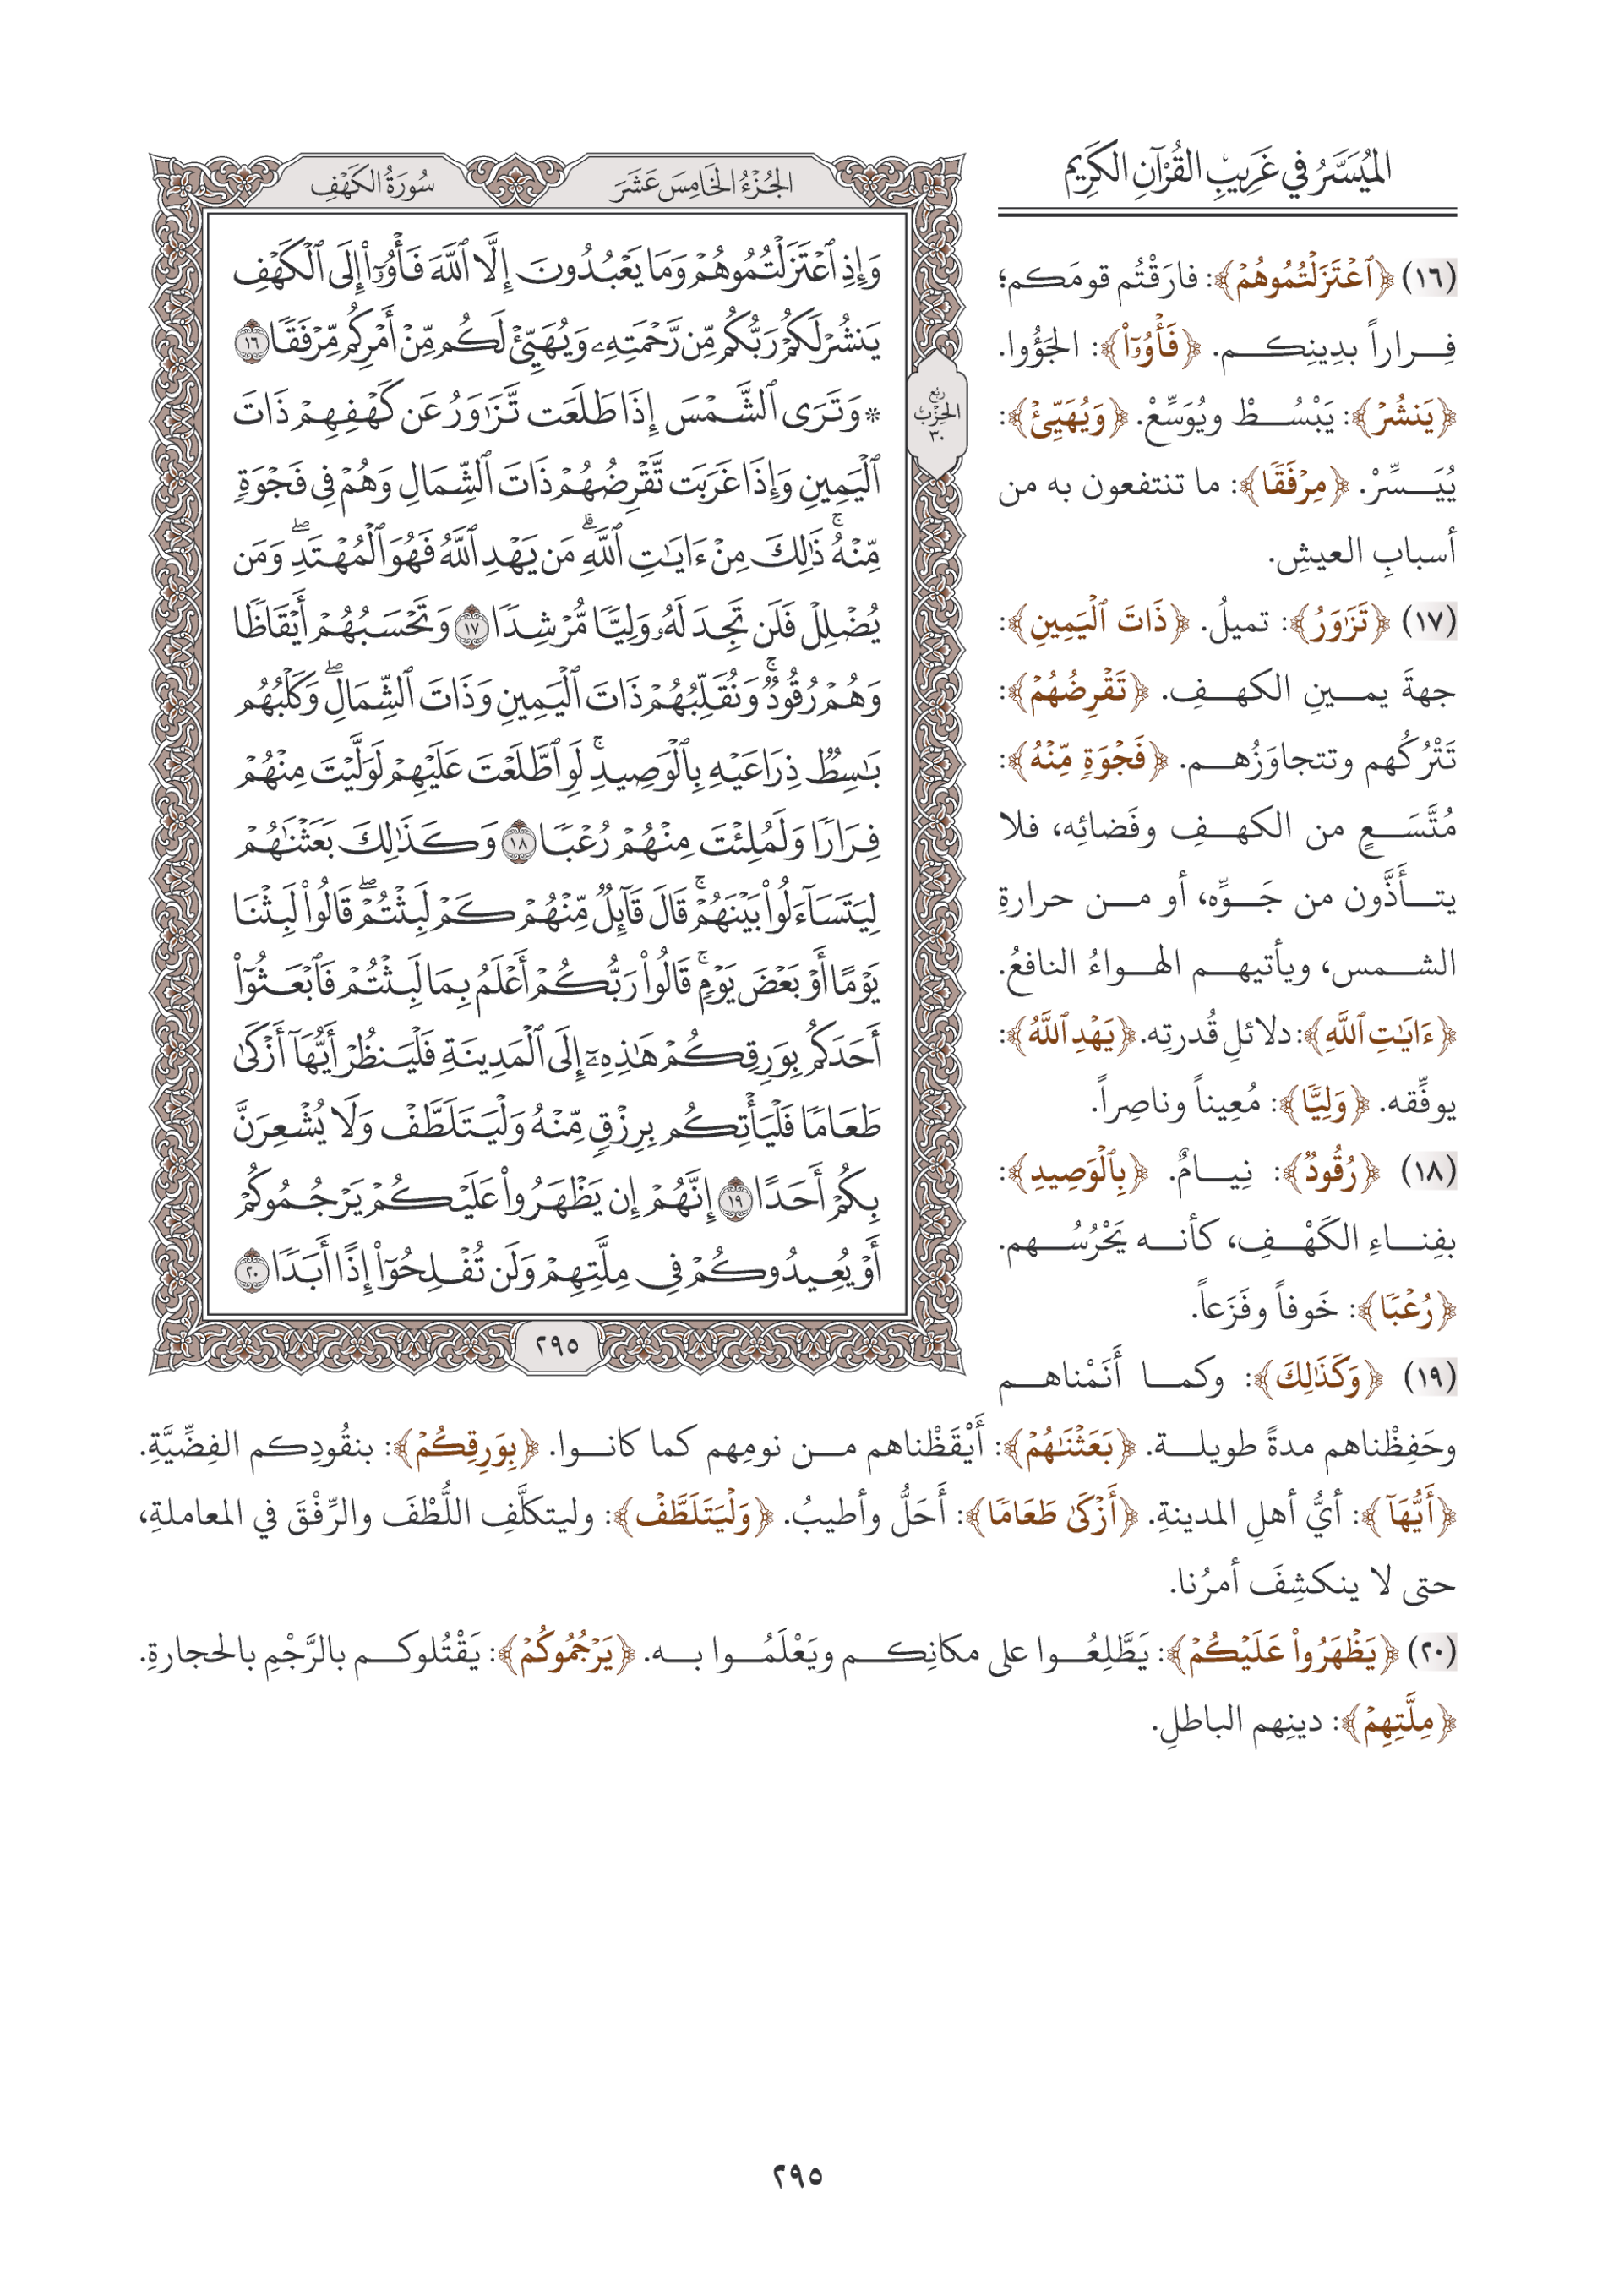 الميَسَّرُ في غَرِيبِ القُرْآنِ الكَرِيمِ
سُورَةُ الكَهْفِ
الجُزْءُ الخَامِسَ عَشَرَ
وَإِذِ ٱعۡتَزَلۡتُمُوهُمۡ وَمَا يَعۡبُدُونَ إِلَّا ٱللَّهَ فَأۡوُۥٓاْ إِلَى ٱلۡكَهۡفِ
يَنشُرۡ لَكُمۡ رَبُّكُم مِّن رَّحۡمَتِهِۦ وَيُهَيِّئۡ لَكُم مِّنۡ أَمۡرِكُم مِّرۡفَقٗا ١٦
* وَتَرَى ٱلشَّمۡسَ إِذَا طَلَعَت تَّزَٰوَرُ عَن كَهۡفِهِمۡ ذَاتَ
ٱلۡيَمِينِ وَإِذَا غَرَبَت تَّقۡرِضُهُمۡ ذَاتَ ٱلشِّمَالِ وَهُمۡ فِي فَجۡوَةٖ
مِّنۡهُۚ ذَٰلِكَ مِنۡ ءَايَٰتِ ٱللَّهِۗ مَن يَهۡدِ ٱللَّهُ فَهُوَ ٱلۡمُهۡتَدِۖ وَمَن
يُضۡلِلۡ فَلَن تَجِدَ لَهُۥ وَلِيّٗا مُّرۡشِدٗا ١٧ وَتَحۡسَبُهُمۡ أَيۡقَاظٗا
وَهُمۡ رُقُودٞۚ وَنُقَلِّبُهُمۡ ذَاتَ ٱلۡيَمِينِ وَذَاتَ ٱلشِّمَالِۖ وَكَلۡبُهُم
بَٰسِطٞ ذِرَاعَيۡهِ بِٱلۡوَصِيدِۚ لَوِ ٱطَّلَعۡتَ عَلَيۡهِمۡ لَوَلَّيۡتَ مِنۡهُمۡ
فِرَارٗا وَلَمُلِئۡتَ مِنۡهُمۡ رُعۡبٗا ١٨ وَكَذَٰلِكَ بَعَثۡنَٰهُمۡ
لِيَتَسَآءَلُواْ بَيۡنَهُمۡۚ قَالَ قَآئِلٞ مِّنۡهُمۡ كَمۡ لَبِثۡتُمۡۖ قَالُواْ لَبِثۡنَا
يَوۡمًا أَوۡ بَعۡضَ يَوۡمٖۚ قَالُواْ رَبُّكُمۡ أَعۡلَمُ بِمَا لَبِثۡتُمۡ فَٱبۡعَثُوٓاْ
أَحَدَكُم بِوَرِقِكُمۡ هَٰذِهِۦٓ إِلَى ٱلۡمَدِينَةِ فَلۡيَنظُرۡ أَيُّهَآ أَزۡكَىٰ
طَعَامٗا فَلۡيَأۡتِكُم بِرِزۡقٖ مِّنۡهُ وَلۡيَتَلَطَّفۡ وَلَا يُشۡعِرَنَّ
بِكُمۡ أَحَدًا ١٩ إِنَّهُمۡ إِن يَظۡهَرُواْ عَلَيۡكُمۡ يَرۡجُمُوكُمۡ
أَوۡ يُعِيدُوكُمۡ فِي مِلَّتِهِمۡ وَلَن تُفۡلِحُوٓاْ إِذًا أَبَدٗا ٢٠
ربع
الحزب
٣٠
٢٩٥
(١٦) ﴿ٱعۡتَزَلۡتُمُوهُمۡ﴾: فارَقْتُم قومَكم؛
فِراراً بدِينِكم. ﴿فَأۡوُۥٓاْ﴾: الجَؤُوا.
﴿يَنشُرۡ﴾: يَبْسُطْ ويُوَسِّعْ. ﴿وَيُهَيِّئۡ﴾:
يُيَسِّرْ. ﴿مِرۡفَقٗا﴾: ما تنتفعون به من
أسبابِ العيشِ.
(١٧) ﴿تَزَٰوَرُ﴾: تميلُ. ﴿ذَاتَ ٱلۡيَمِينِ﴾:
جهةَ يمينِ الكهفِ. ﴿تَقۡرِضُهُمۡ﴾:
تَتْرُكُهم وتتجاوَزُهم. ﴿فَجۡوَةٖ مِّنۡهُ﴾:
مُتَّسَعٍ من الكهفِ وفَضائِه، فلا
يتأَذَّون من جَوِّه، أو من حرارةِ
الشمس، ويأتيهم الهواءُ النافعُ.
﴿ءَايَٰتِ ٱللَّهِ﴾: دلائلِ قُدرتِه. ﴿يَهۡدِ ٱللَّهُ﴾:
يوفِّقه. ﴿وَلِيّٗا﴾: مُعِيناً وناصِراً.
(١٨) ﴿رُقُودٞ﴾: نِيامٌ. ﴿بِٱلۡوَصِيدِ﴾:
بفِناءِ الكَهْفِ، كأنه يَحْرُسُهم.
﴿رُعۡبٗا﴾: خَوفاً وفَزَعاً.
(١٩) ﴿وَكَذَٰلِكَ﴾: وكما أَنَمْناهم
وحَفِظْناهم مدةً طويلة. ﴿بَعَثۡنَٰهُمۡ﴾: أَيْقَظْناهم من نومِهم كما كانوا. ﴿بِوَرِقِكُمۡ﴾: بنقُودِكم الفِضِّيَّةِ.
﴿أَيُّهَآ﴾: أيُّ أهلِ المدينةِ. ﴿أَزۡكَىٰ طَعَامٗا﴾: أَحَلُّ وأطيبُ. ﴿وَلۡيَتَلَطَّفۡ﴾: وليتكلَّفِ اللُّطْفَ والرِّفْقَ في المعاملةِ،
حتى لا ينكشِفَ أمرُنا.
(٢٠) ﴿يَظۡهَرُواْ عَلَيۡكُمۡ﴾: يَطَّلِعُوا على مكانِكم ويَعْلَمُوا به. ﴿يَرۡجُمُوكُمۡ﴾: يَقْتُلوكم بالرَّجْمِ بالحجارةِ.
﴿مِلَّتِهِمۡ﴾: دينِهم الباطلِ.
٢٩٥